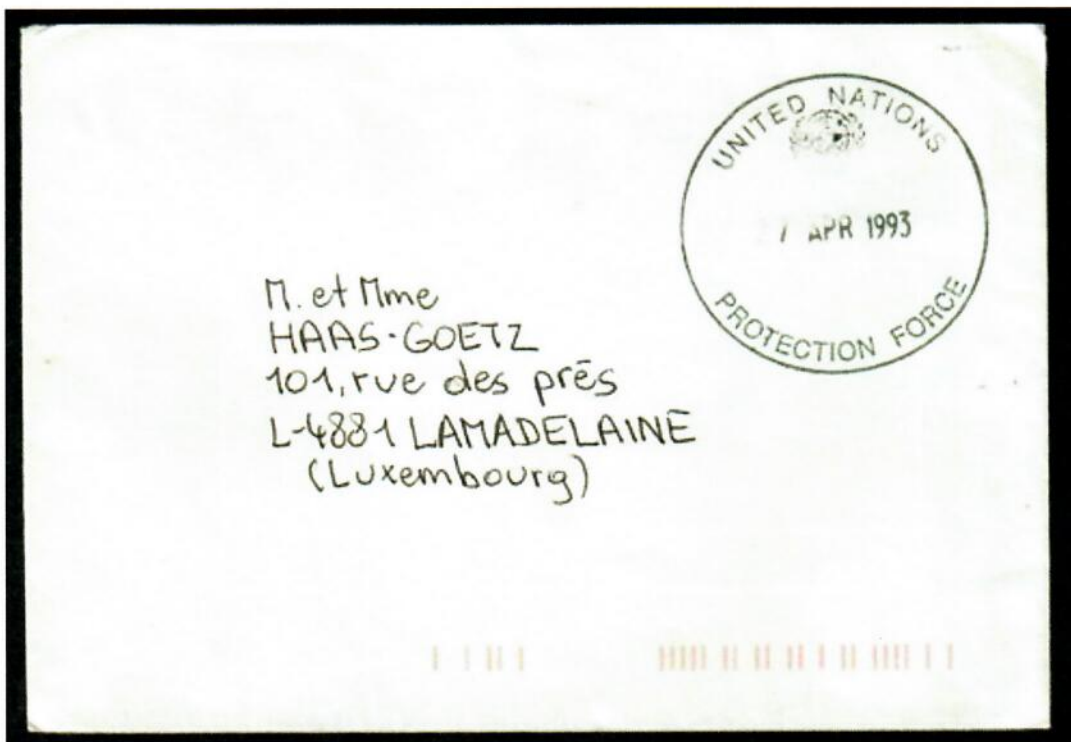 UNITED NATIONS
7 APR 1993
PROTECTION FORCE
M. et Mme
HAAS-GOETZ
101, rue des prés
L-4881 LAMADELAINE
(Luxembourg)